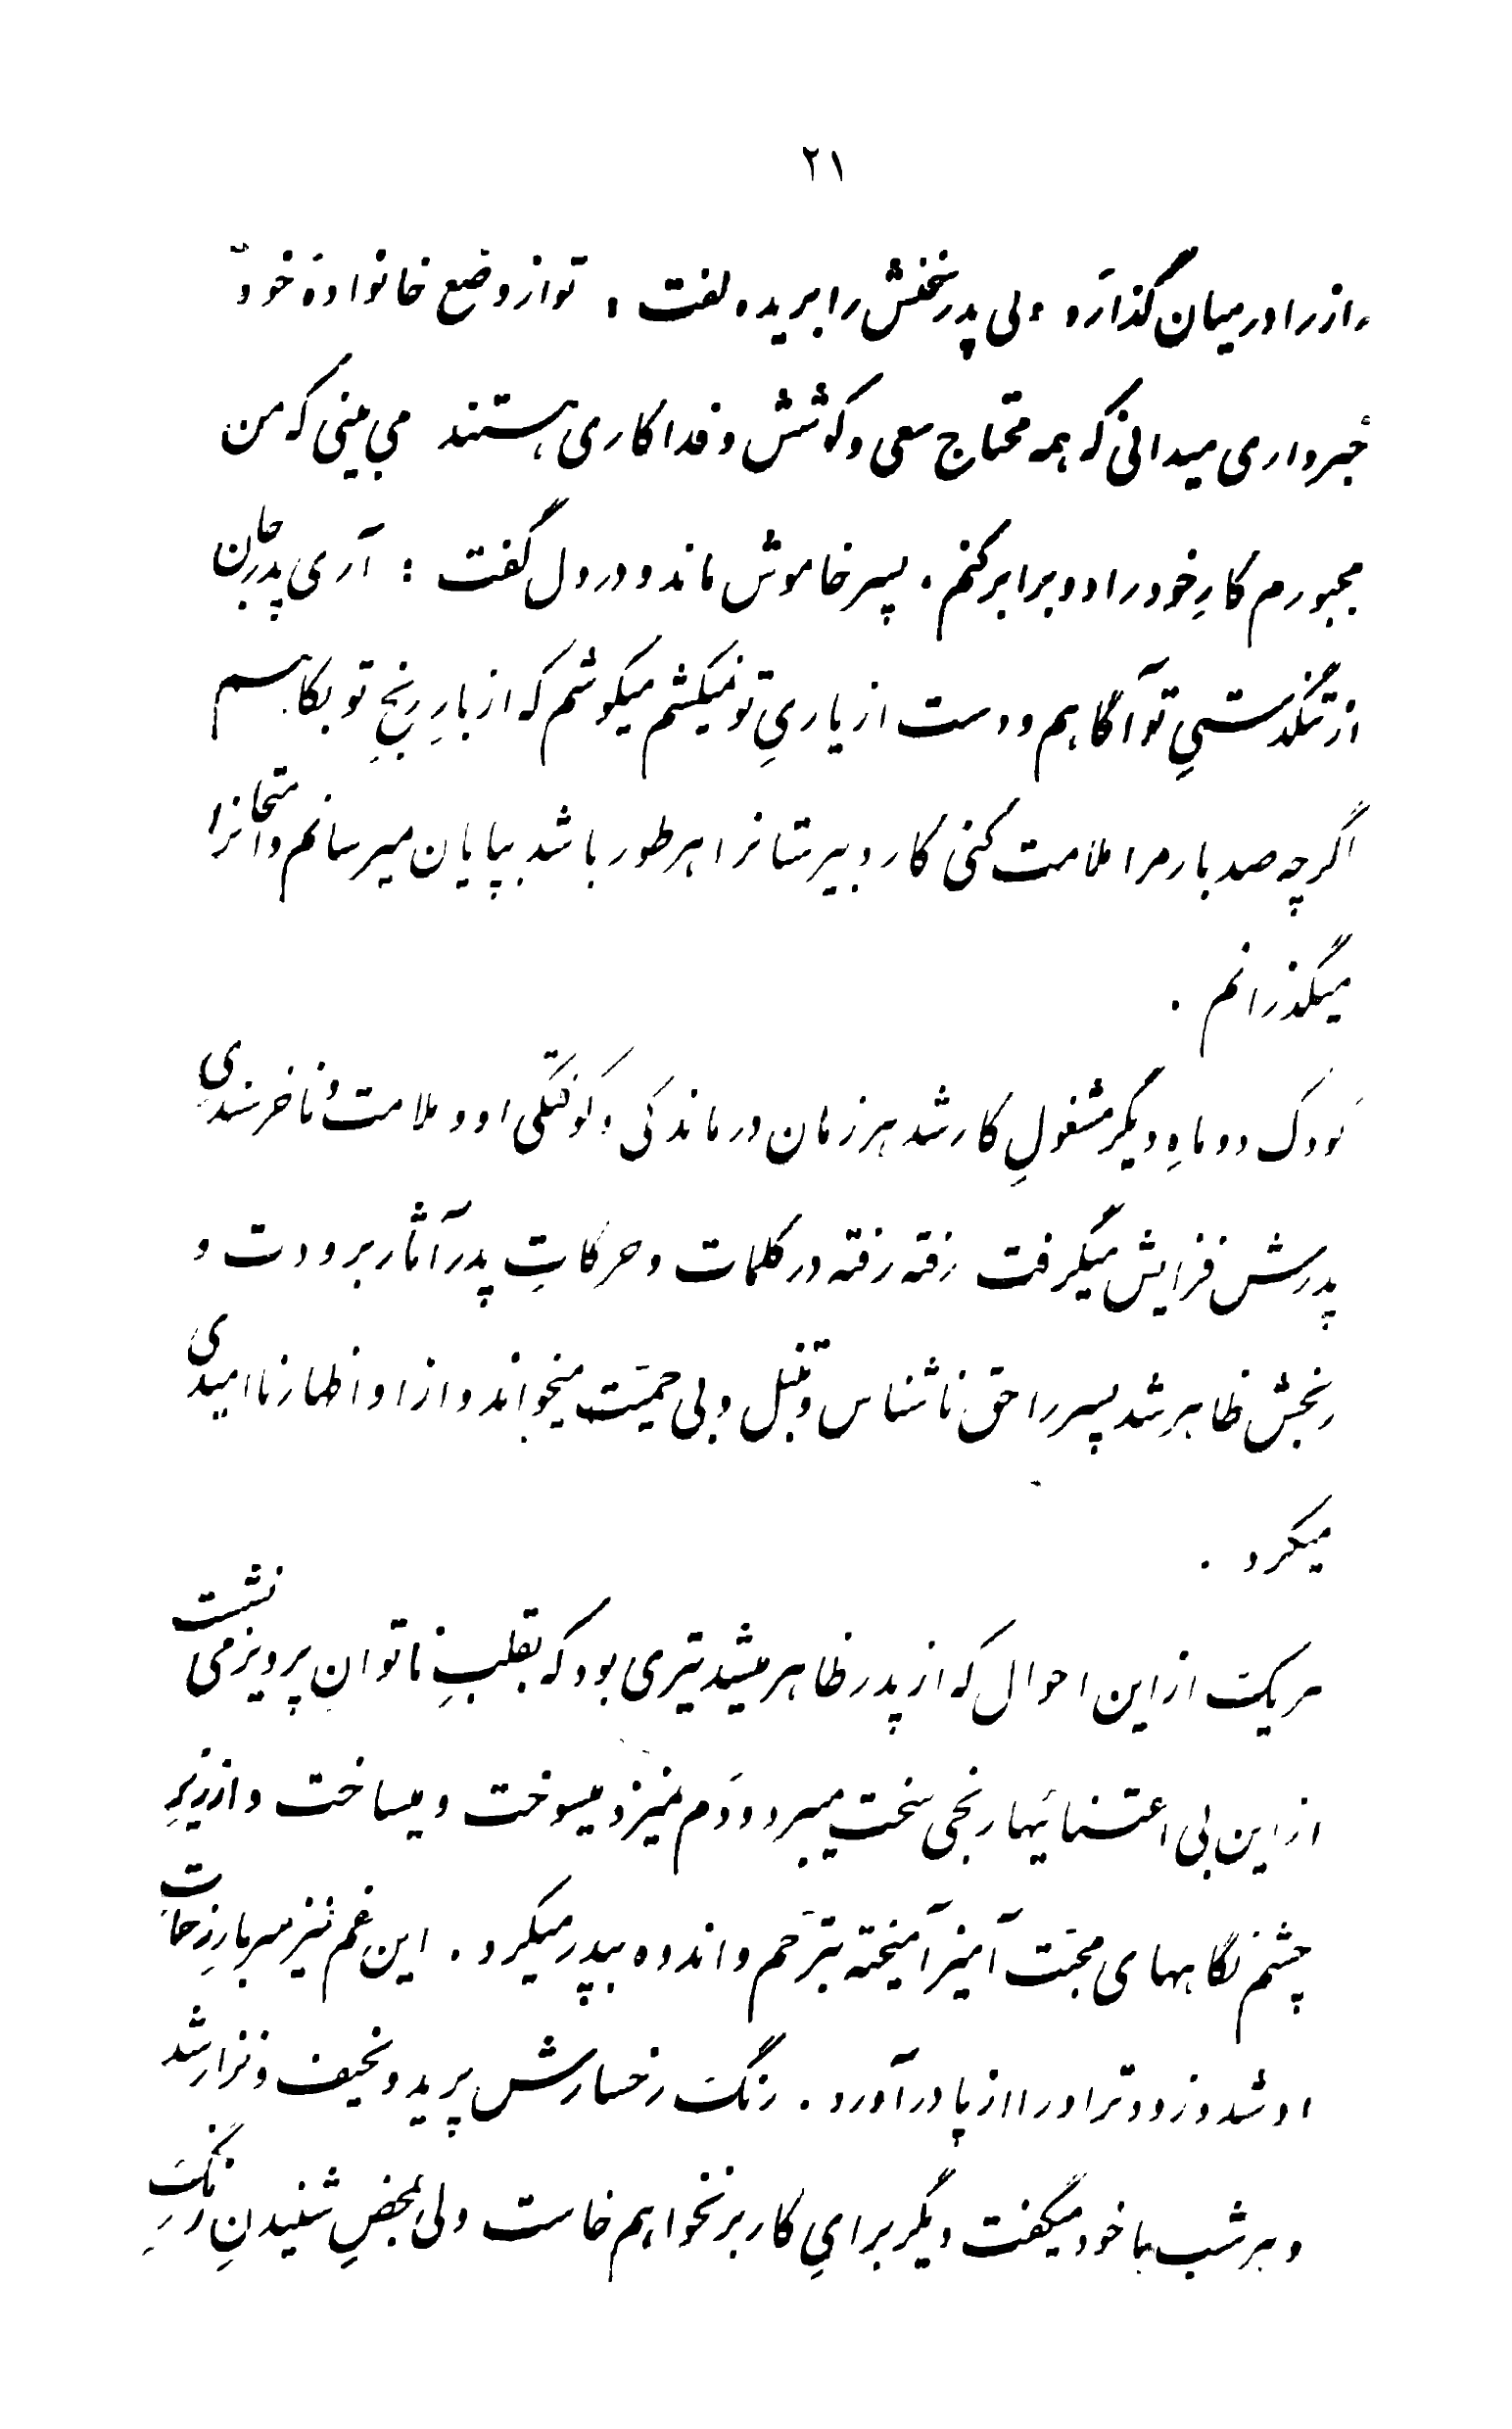 ۲۱
راز را در میان گذارد ولی پدر سخنش را بریده گفت : تو از وضع خانوادهٔ خود
خبر داری میدانی که همه محتاج سعی و کوشش و فداکاری هستند می بینی که من
مجبورم کارِ خود را دو برابر کنم . پسر خاموش ماند و در دل گفت : آری پدر جان
از تنگدستیِ تو آگاهم و دست از یاریِ تو نمیکشم میکوشم که از بارِ رنجِ تو بکاهم
اگرچه صد بار مرا ملامت کنی کار دبیرستانرا هر طور باشد بپایان میرسانم و امتحانرا
میگذرانم .
کودک دو ماهِ دیگر مشغولِ کار شد هر زمان درماندگی و کوفتگی او و ملامت و ناخرسندیِ
پدرش فزایش میگرفت رفته رفته در کلمات و حرکاتِ پدر آثار برودت و
رنجش ظاهر شد پسر را حق ناشناس و تنبل و بی حمیّت میخواند و از او اظهار ناامیدی
میکرد .
هر یک از این احوال که از پدر ظاهر میشد تیری بود که بقلبِ ناتوانِ پرویز می نشست
از این بی اعتنائیها رنجی سخت میبرد و دَم نمیزد میسوخت و میساخت و از زیرِ
چشم نگاههای محبّت آمیز آمیخته بترحّم و اندوه بپدر میکرد . این غم نیز سربارِ زحماتِ
او شد و زودتر او را از پا در آورد . رنگ رخسارش پرید و نحیف و نزار شد
و هر شب با خود میگفت دیگر برایِ کار بر نخواهم خاست ولی بمحضِ شنیدنِ زنگ